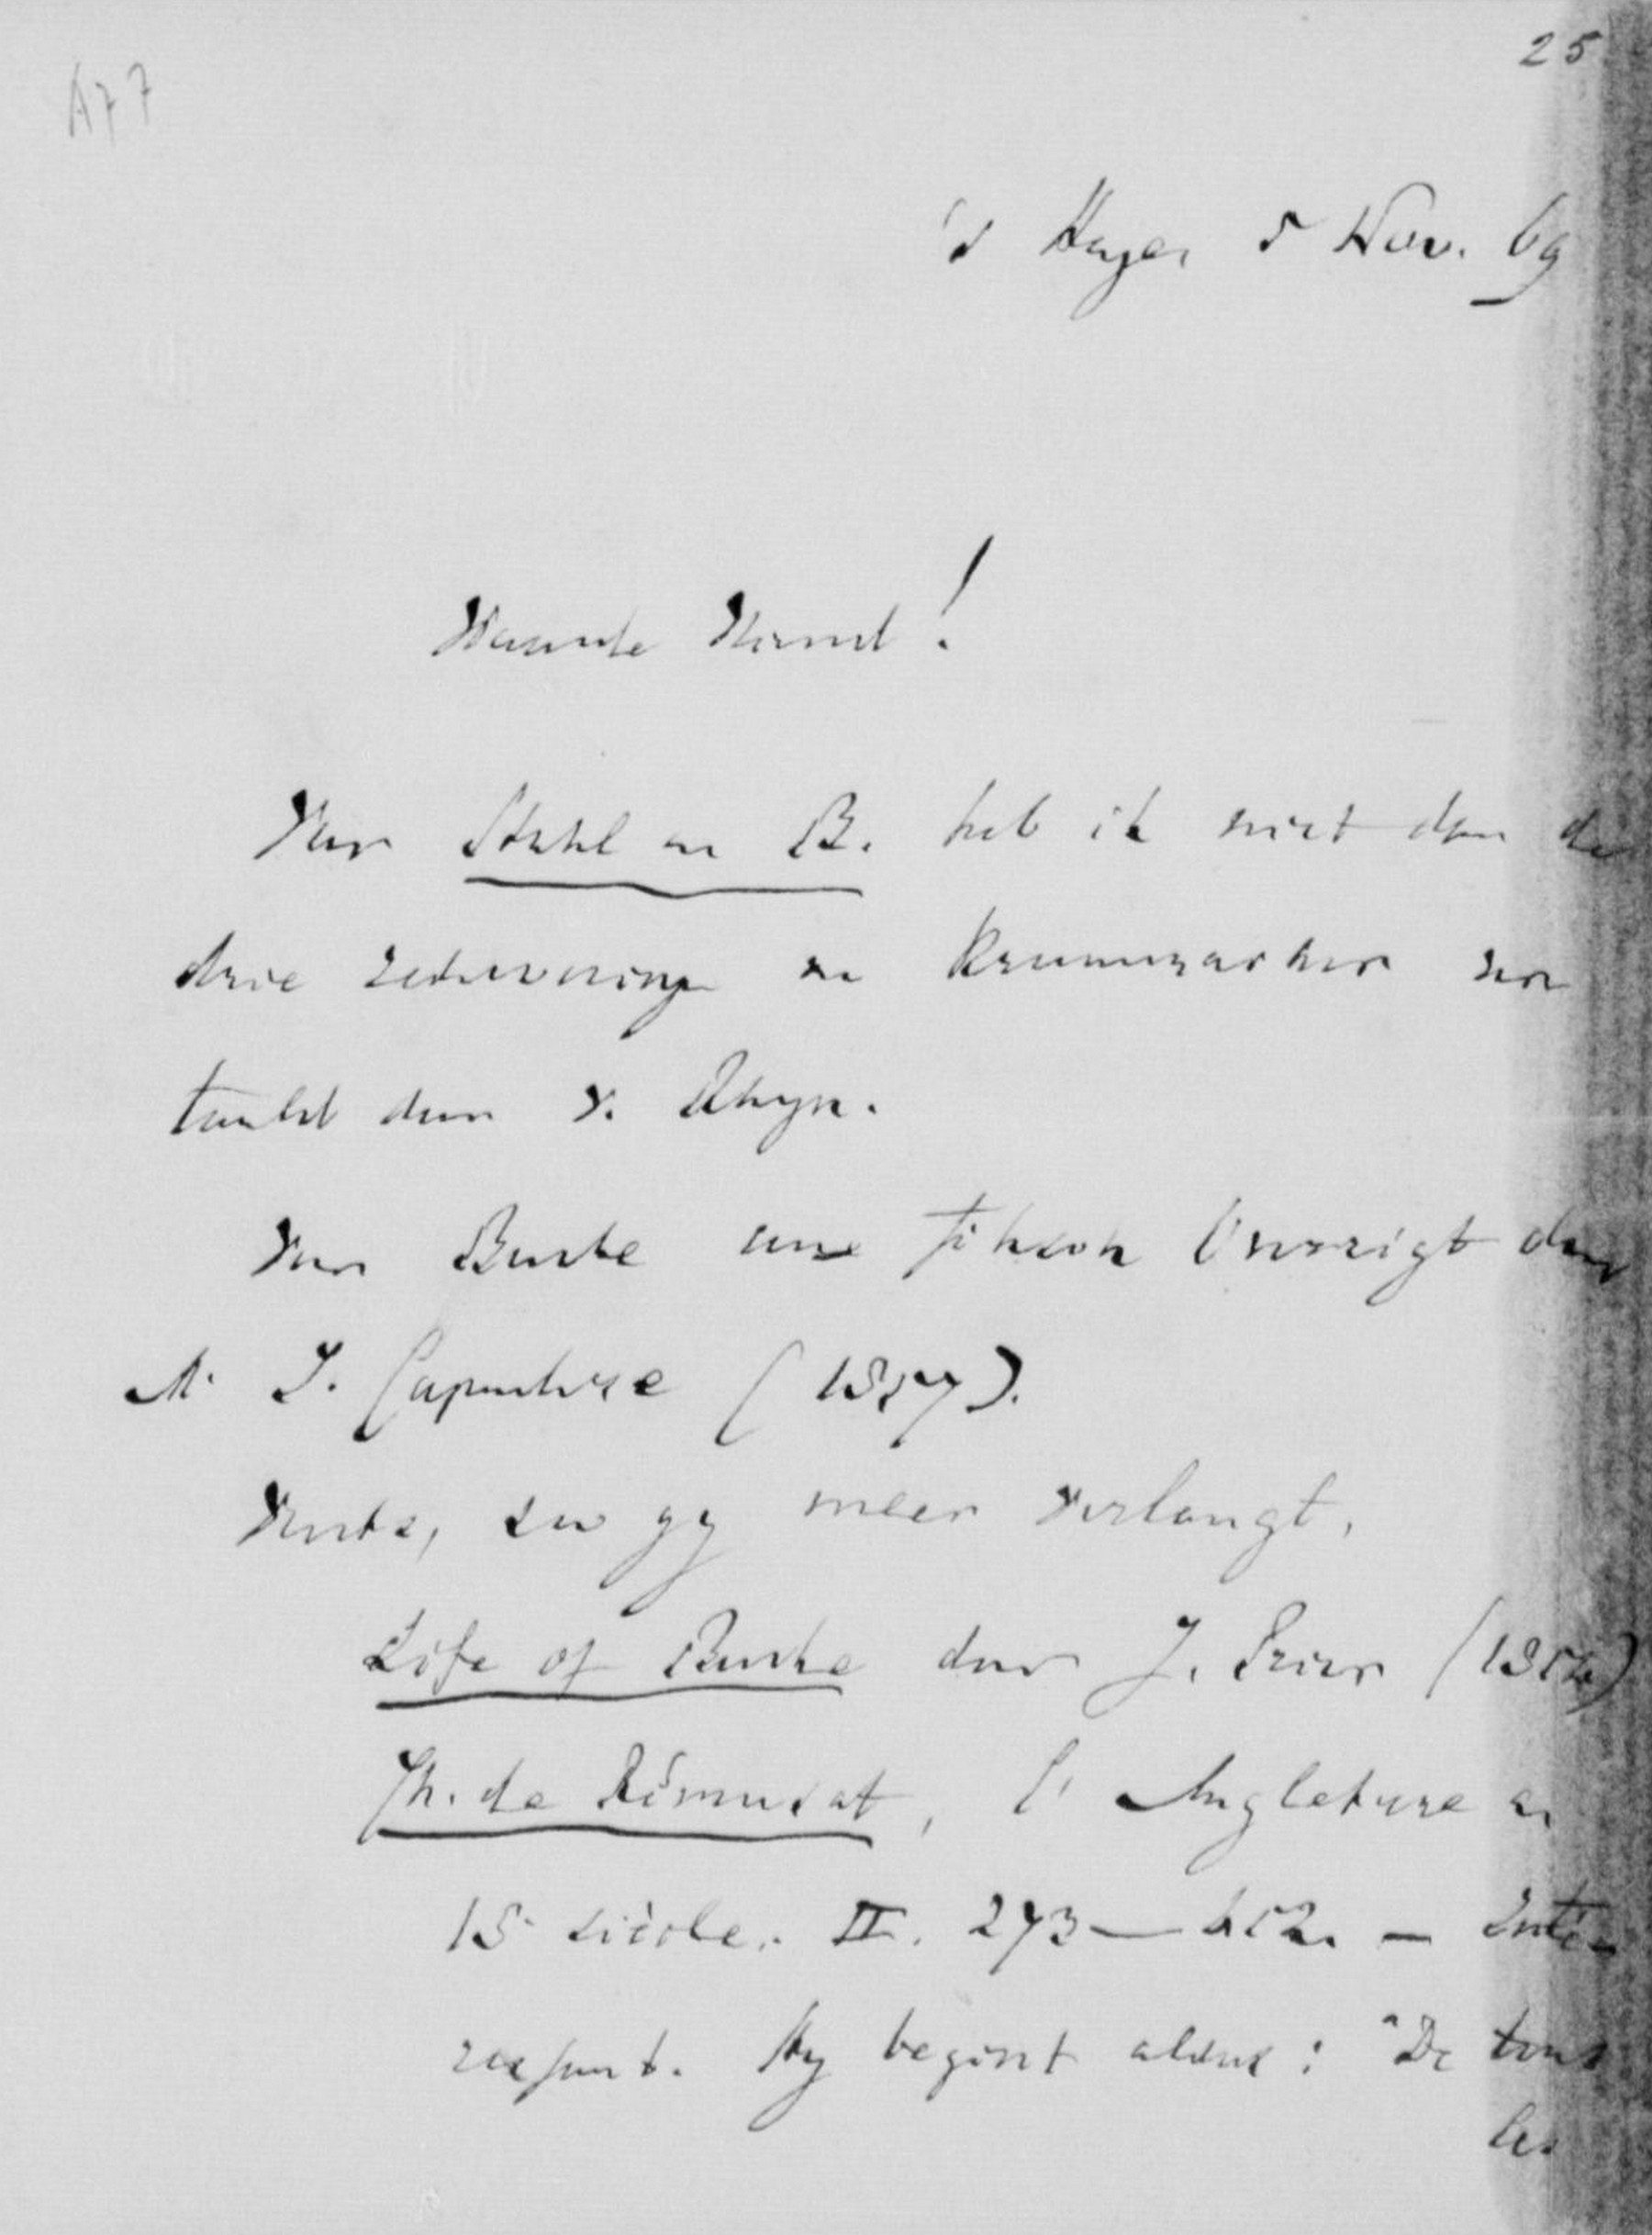 A77
25
's Hage, 5 Nov. 69
Waarde Vriend!
Van Stahl en B. heb ik niet dan de
drie redevoeringen van Krummacher ver
taald door v. Rhyn.
Van Burke een Overzigt door
M. J. Carpentier (1857).
Verder, zoo gij meer verlangt,
Life of Burke door J. Prior (1854)
Ch. de Rémusat, l'Angleterre au
18e siècle. II. 273— — Inté-
ressant. Hy begint aldus: "De tous
les